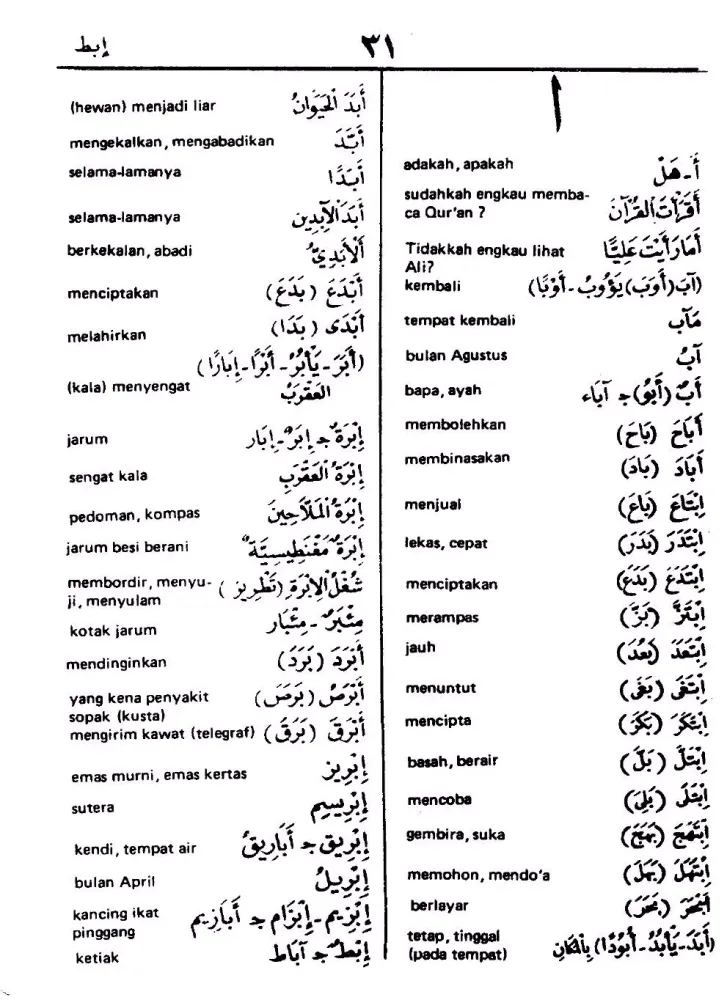 إبط ٣١
ا
adakah, apakah أَ - هَلْ
sudahkah engkau memba- أَقَرَأْتَ الْقُرْآنَ
ca Qur'an ?
Tidakkah engkau lihat أَمَا رَأَيْتَ عَلِيًّا
Ali?
kembali (آبَ (أَوَبَ) يَؤُوبُ - أَوْبًا)
tempat kembali مَآبٌ
bulan Agustus آبُ
bapa, ayah أَبٌ (أَبَوٌ) ج آبَاء
membolehkan أَبَاحَ (بَاحَ)
membinasakan أَبَادَ (بَادَ)
menjual اِبْتَاعَ (بَاعَ)
lekas, cepat اِبْتَدَرَ (بَدَرَ)
menciptakan اِبْتَدَعَ (بَدَعَ)
merampas اِبْتَزَّ (بَزَّ)
jauh اِبْتَعَدَ (بَعُدَ)
menuntut اِبْتَغَى (بَغَى)
mencipta اِبْتَكَرَ (بَكَرَ)
basah, berair اِبْتَلَّ (بَلَّ)
mencoba اِبْتَلَى (بَلِيَ)
gembira, suka اِبْتَهَجَ (بَهَجَ)
memohon, mendo'a اِبْتَهَلَ (بَهَلَ)
berlayar أَبْحَرَ (بَحَرَ)
tetap, tinggal (أَبَدَ - يَأْبُدُ - أُبُودًا) بِالْمَكَانِ
(pada tempat)
(hewan) menjadi liar أَبَدَ الْحَيَوَانُ
mengekalkan, mengabadikan أَبَّدَ
selama-lamanya أَبَدًا
selama-lamanya أَبَدَ الْآبِدِين
berkekalan, abadi اَلْأَبَدِيُّ
menciptakan أَبْدَعَ (بَدَعَ)
melahirkan أَبْدَى (بَدَا)
(أَبَرَ - يَأْبُرُ - أَبْرًا - إِبَارًا)
(kala) menyengat الْعَقْرَبُ
jarum إِبْرَةٌ ج إِبَرٌ - إِبَار
sengat kala إِبْرَةُ الْعَقْرَبِ
pedoman, kompas إِبْرَةُ الْمَلَّاحِينَ
jarum besi berani إِبْرَةٌ مَغْنَطِيسِيَّةٌ
membordir, menyu- شُغْلُ الْإِبْرَةِ (تَطْرِيز)
ji, menyulam
kotak jarum مِئْبَرٌ - مِئْبَار
mendinginkan أَبْرَدَ (بَرَدَ)
yang kena penyakit أَبْرَصُ (بَرَصَ)
sopak (kusta)
mengirim kawat (telegraf) أَبْرَقَ (بَرَقَ)
emas murni, emas kertas إِبْرِيز
sutera إِبْرِيسِم
kendi, tempat air إِبْرِيق ج أَبَارِيقُ
bulan April إِبْرِيلُ
kancing ikat إِبْزِيم - إِبْزَام ج أَبَازِيم
pinggang
ketiak إِبْطٌ ج آبَاط